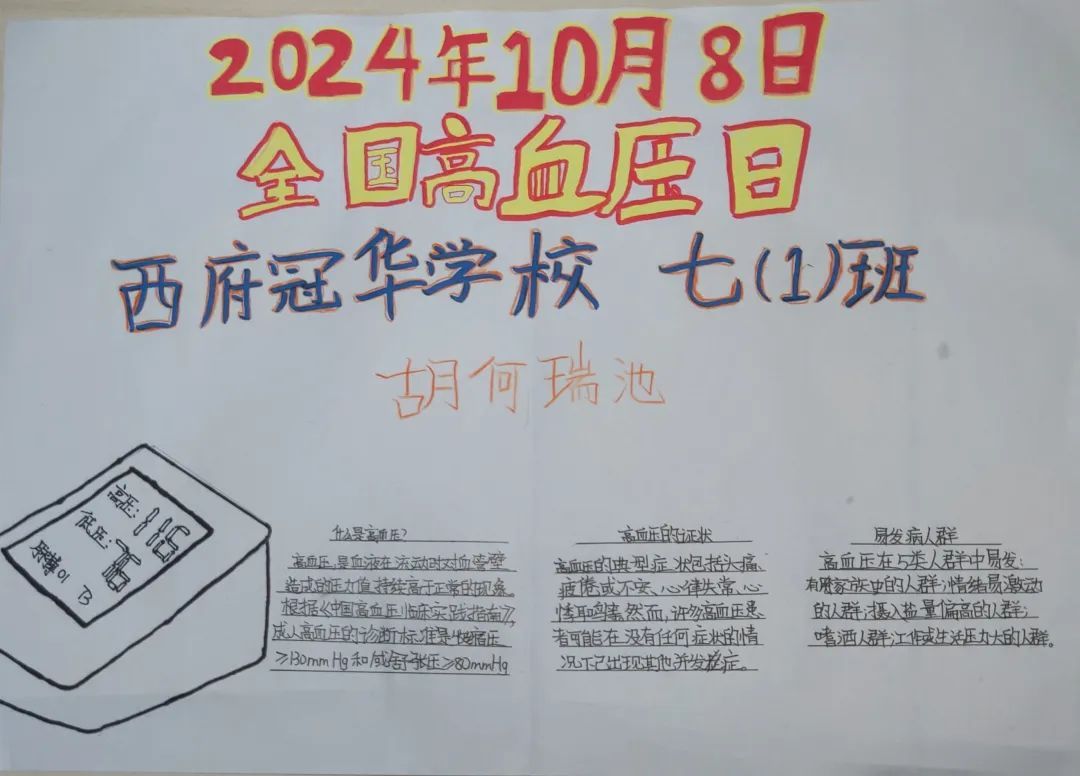 2024年10月8日
全国高血压日
西府冠华学校 七(1)班
胡何瑞池
高压:115
低压:76
脉搏01 B
什么是高血压?
高血压,是血液在流动时对血管壁
造成的压力值持续高于正常的现象。
根据《中国高血压临床实践指南》,
成人高血压的诊断标准是收缩压
≥130mmHg和/或舒张压≥80mmHg
高血压的症状
高血压的典型症状包括头痛、
疲倦或不安、心律失常、心
悸耳鸣等,然而,许多高血压患
者可能在没有任何症状的情
况下已出现其他并发症。
易发病人群
高血压在5类人群中易发:
有家族史的人群;情绪易激动
的人群;摄入盐量偏高的人群;
嗜酒人群;工作或生活压力大的人群。